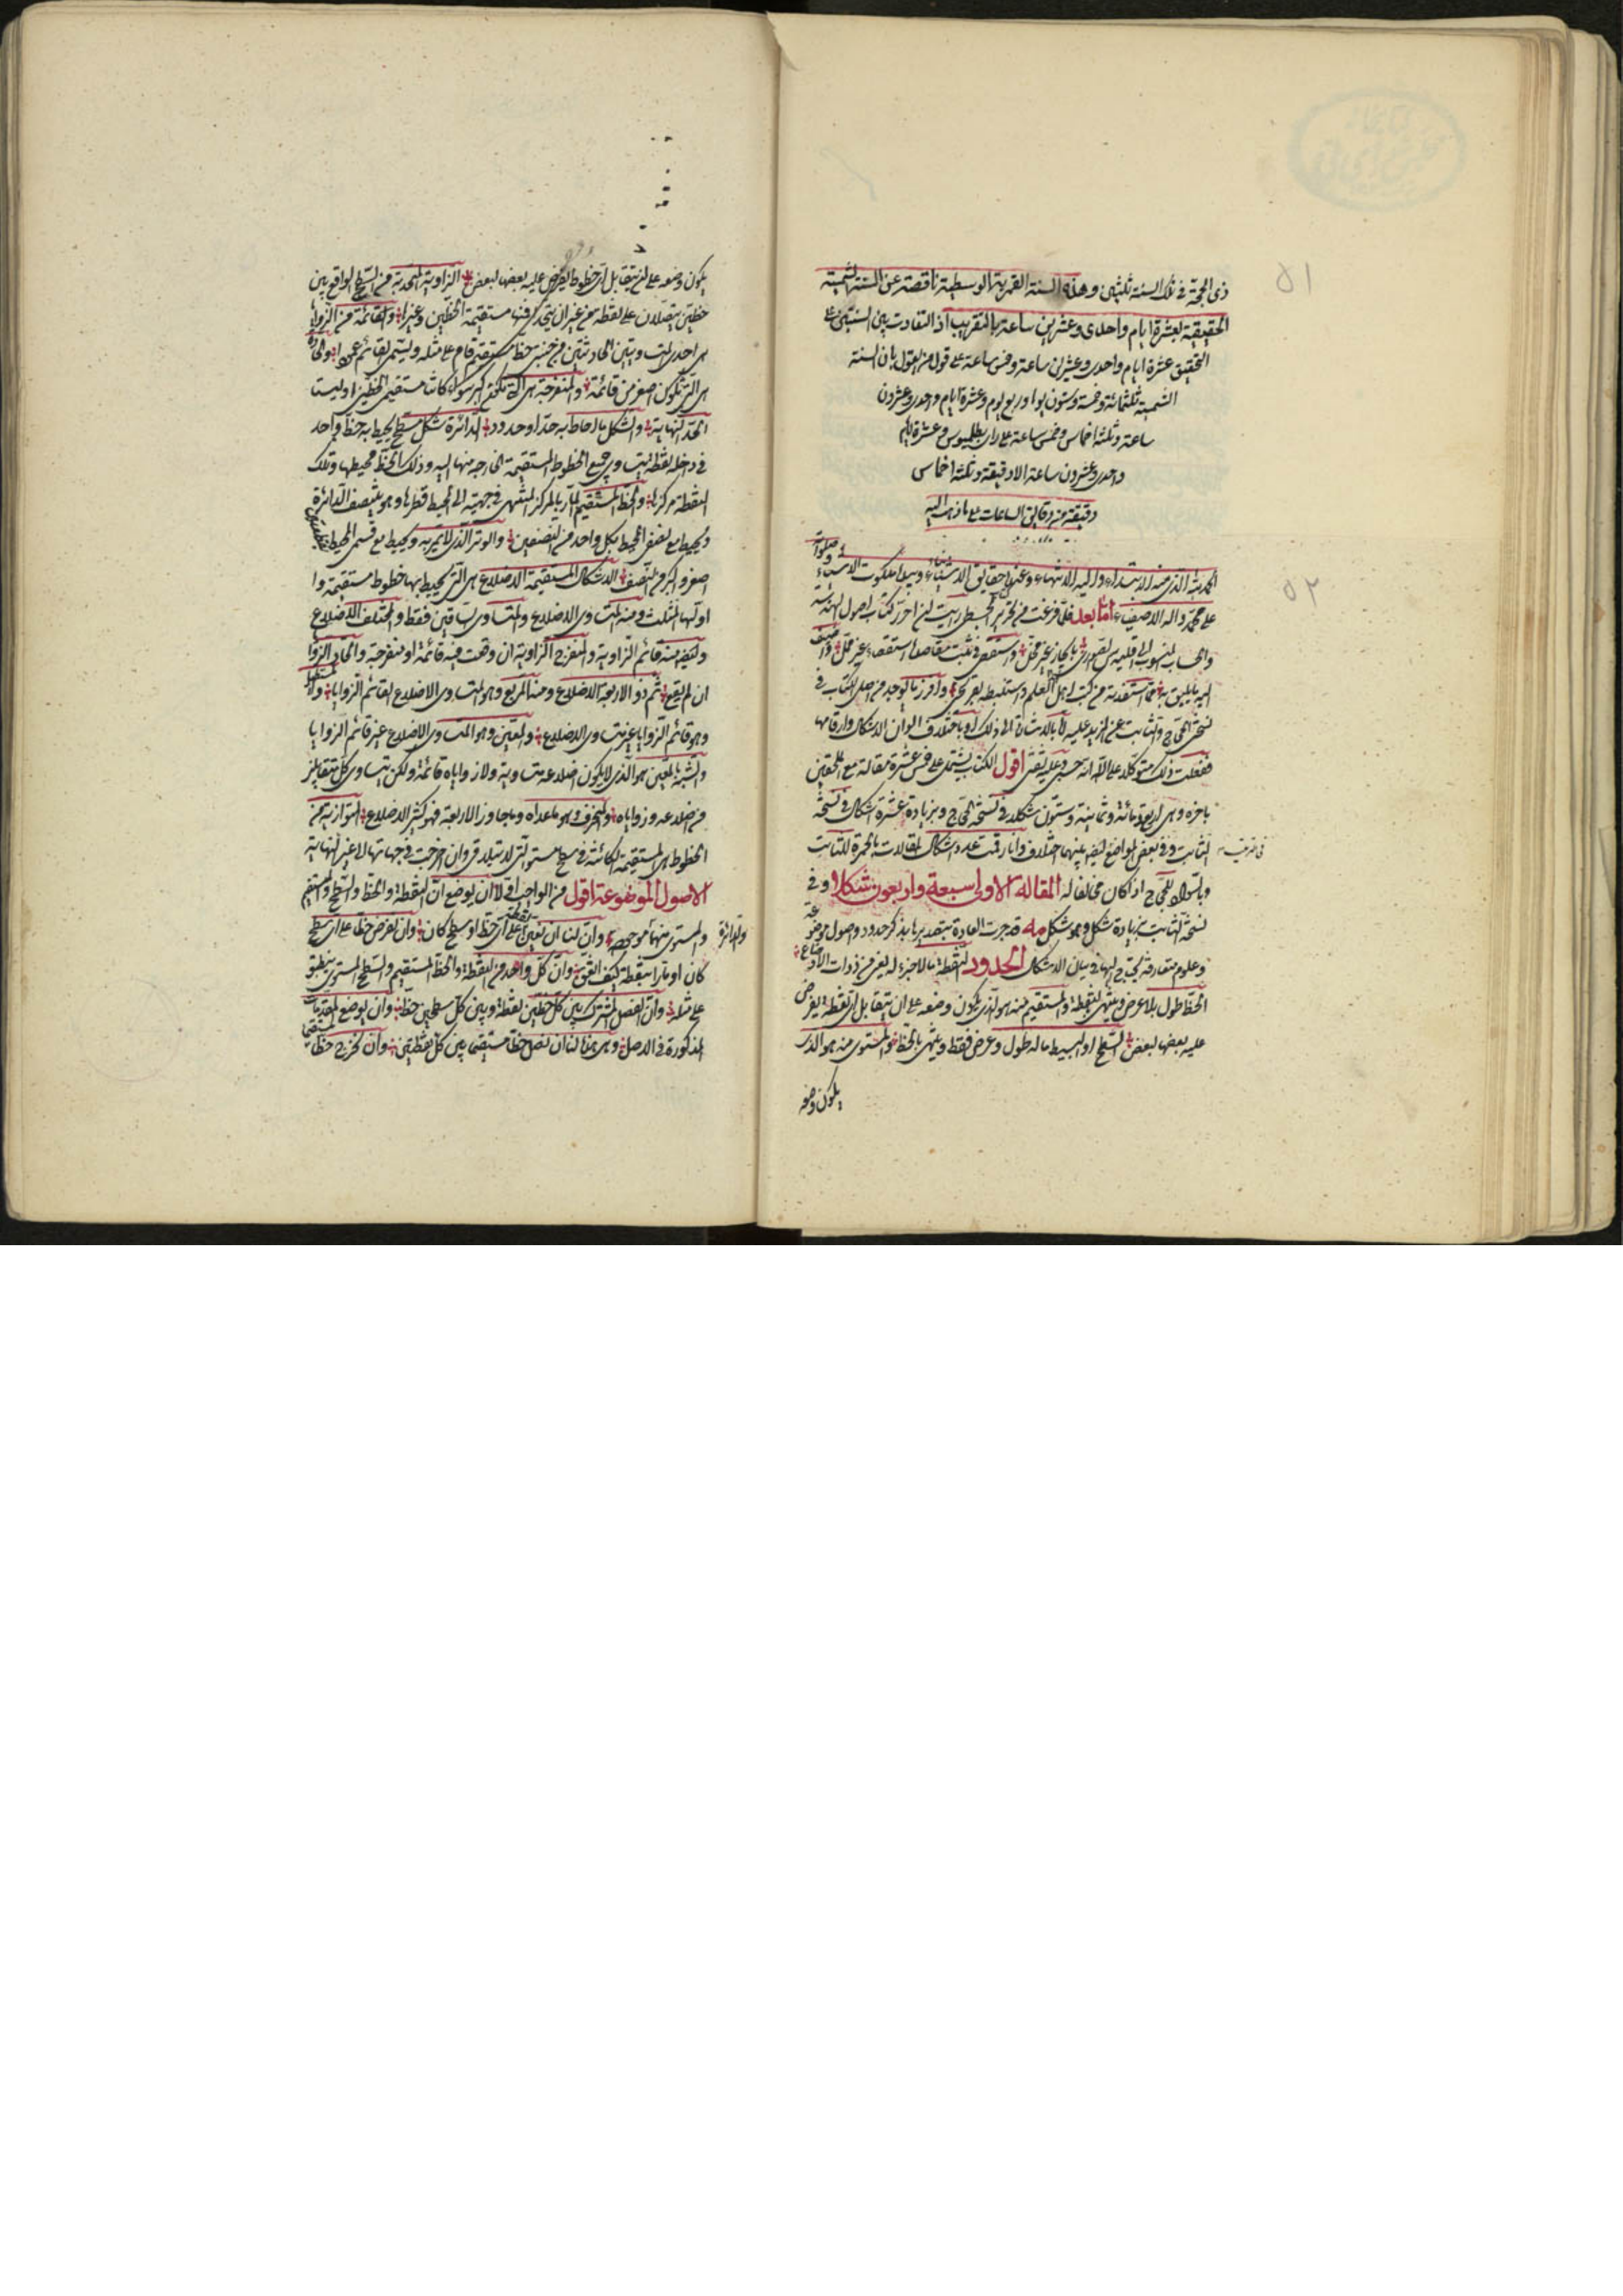 ذى الحجة فى تلك السنة ثلثين وهذه السنة القمرية الوسطية ناقصة عن السنة الشمسية
الحقيقية بعشرة ايام واحدى وعشرين ساعة بالتقريب اذ التفاوت بين السنتين على
التحقيق عشرة ايام واحدى وعشرين ساعة وخمس ساعة على قول من يقول بان السنة
الشمسية ثلثمائة وخمسة وستون يوما وربع يوم وعشرة ايام واحدى وعشرون
ساعة وثلثة اخماس وخمس ساعة على راى بطلميوس وعشرة ايام
واحدى وعشرون ساعة الا دقيقة وثلثة اخماس
دقيقة من دقايق الساعات على ما ذهب اليه
الحمد لله الذى منه الابتداء واليه الانتهاء وعنده حقايق الانباء وبيده ملكوت الاشياء وصلواته
على محمد واله الاصفياء اما بعد فلما فرغت من تحرير المجسطى رايت ان احرر كتاب اصول الهندسة
والحساب المنسوب الى اقليدس الصورى بايجاز غير مخل واستقصى فى تثبيت مقاصده استقصاء غير ممل واضيف
اليه ما يليق به مما استفدته من كتب اهل هذا العلم واستنبطته بقريحتى وافرز ما يوجد من اصل الكتاب فى
نسختى الحجاج وثابت عن المزيد عليه اما بالاشارة الى ذلك او باختلاف الوان الاشكال وارقامها
ففعلت ذلك متوكلا على الله انه حسبى وعليه ثقتى اقول الكتاب يشتمل على خمس عشرة مقالة مع الملحقتين
باخره وهى اربعمائة وثمانية وستون شكلا فى نسخة الحجاج وبزيادة عشرة اشكال فى نسخة
ثابت وفى بعض المواضع فى الترتيب ايضا بينهما اختلاف وانا رقمت عدد اشكال المقالات بالحمرة لثابت
وبالسواد للحجاج اذا كان مخالفا له المقالة الاولى سبعة واربعون شكلا وفى
نسخة ثابت بزيادة شكل وهو شكل مه قد جرت العادة بتصديرها بذكر حدود واصول موضوعة
وعلوم متعارفة يحتاج اليها فى بيان الاشكال الحدود النقطة ما لا جزء له يعنى من ذوات الاوضاع
الخط طول بلا عرض وينتهى بالنقطة والمستقيم منه هو الذى يكون وضعه على ان يتقابل اى نقطة يفرض
عليه بعضها لبعض السطح او البسيط ما له طول وعرض فقط وينتهى بالخط والمستوى منه هو الذى
يكون وضعه
٥١
٥٢
يكون وضعه على ان يتقابل اى خطوط يفرض عليه بعضها لبعض الزاوية المسطحة من السطح الواقع بين
خطين يتصلان على نقطة من غير ان يتحدا فمنها مستقيمة الخطين وغيرها والقائمة من الزوايا
هى احدى المتساويتين الحادثتين من جنبتى خط مستقيم قام على مثله ويسمى القائم عمودا والحادة
هى التى تكون اصغر من قائمة والمنفرجة هى التى تكون اكبر سواء كانت مستقيمى الخطين او ليست
الحد النهاية والشكل ما احاط به حد او حدود الدائرة شكل مسطح يحيط به خط واحد
فى داخله نقطة يتساوى جميع الخطوط المستقيمة الخارجة منها اليه وذلك الخط محيطها وتلك
النقطة مركزها والخط المستقيم المار بالمركز المنتهى فى جهتيه الى المحيط قطرها وهو ينصف الدائرة
ويحيط مع نصفى المحيط بكل واحد من النصفين والوتر الذى لا يمر به ويحيط مع قسمى المحيط بقطعتين
اصغر واكبر من النصف الاشكال المستقيمة الاضلاع هى التى يحيط بها خطوط مستقيمة و
اولها المثلث ومنه المتساوى الاضلاع والمتساوى الساقين فقط والمختلف الاضلاع
وايضا منه قائم الزاوية والمنفرج الزاوية ان وقعت فيه قائمة او منفرجة والحاد الزوايا
ان لم يقع ثم ذو الاربعة الاضلاع ومنه المربع وهو المتساوى الاضلاع القائم الزوايا والمستطيل
وهو قائم الزوايا غير متساوى الاضلاع والمعين وهو المتساوى الاضلاع غير قائم الزوايا
والشبيه بالمعين هو الذى لا يكون اضلاعه متساوية ولا زواياه قائمة ولكن يتساوى كل متقابلين
من اضلاعه وزواياه والمنحرف وهو ما عداه وما جاوز الاربعة فهو كثير الاضلاع المتوازية من
الخطوط هى المستقيمة الكائنة فى سطح مستو التى لا تتلاقى وان اخرجت فى جهاتها الى غير النهاية
الاصول الموضوعة اقول من الواجب اولا ان يوضع ان النقطة والخط والسطح والمستقيم
والمستوى منهما والدائرة موجودة وان لنا ان نعين نقطة على اى خط او سطح كان وان نفرض خطا على اى سطح
كان او مارا بنقطة كيف اتفق وان كل واحد من النقطة والخط المستقيم والسطح المستوى ينطبق
على مثله وان الفصل المشترك بين كل خطين نقطة وبين كل سطحين خط وان يوضع المقدمات
المذكورة فى الاصل وهى هذه لنا ان نصل خطا مستقيما بين كل نقطتين وان نخرج خطا مستقيما